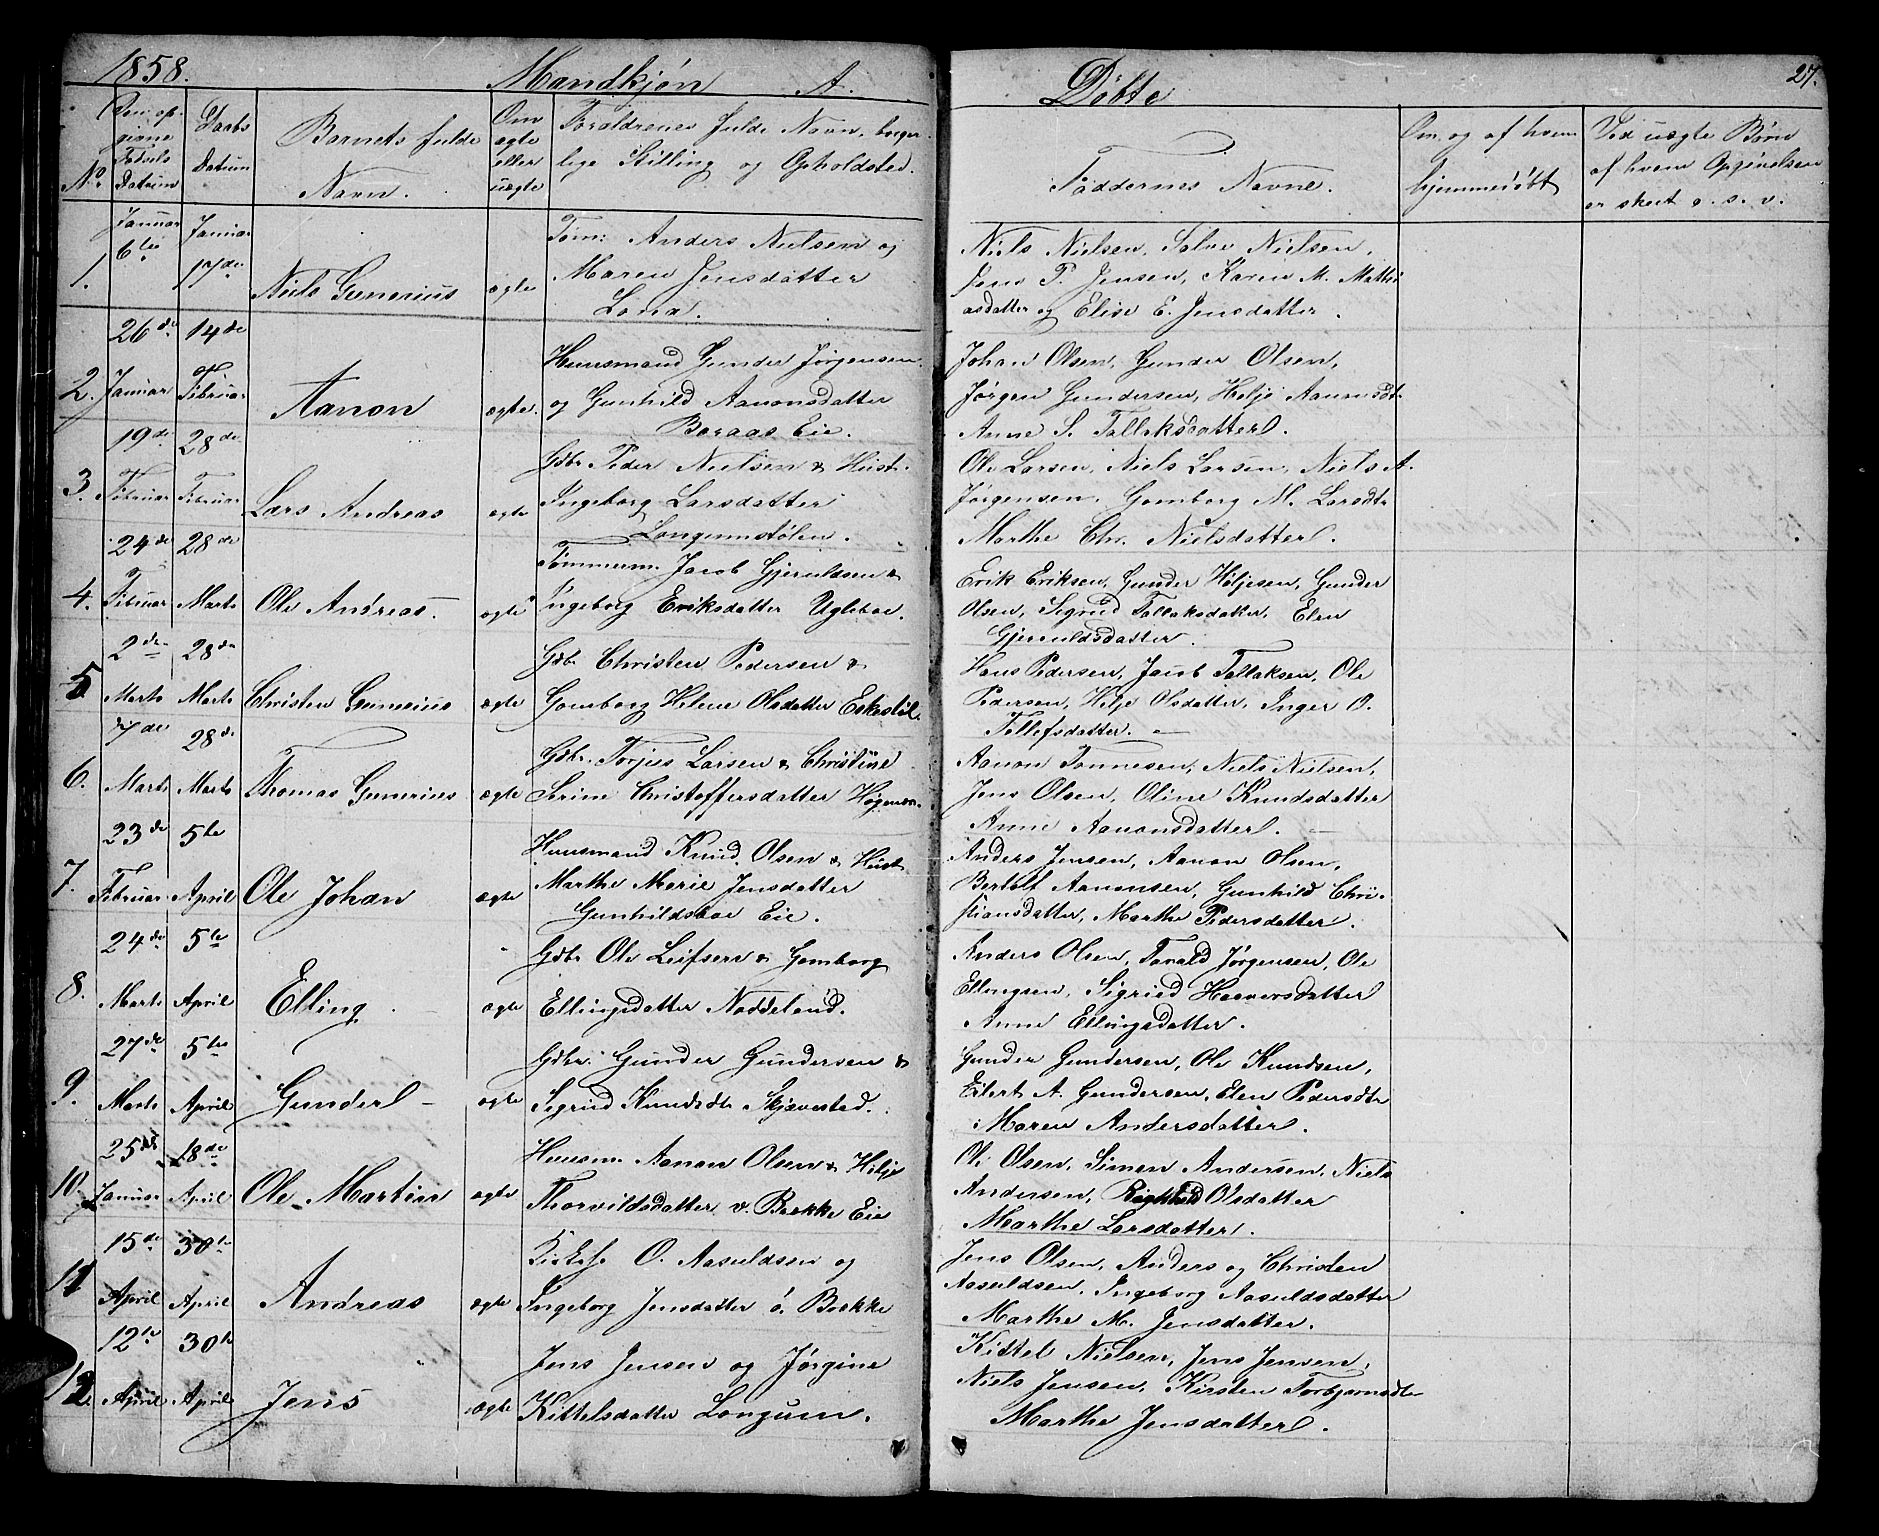 1858.
Mandkjøn A.
No.
Den opgivne Fødsels Datum
Daabs Datum
Barnets fulde Navn.
Om ægte eller uægte
Forældrenes fulde Navn, borger-
lige Stilling og Opholdsted.
1. Januar 6te Januar 17de Niels Gunerius ægte
Tøm: Anders Nielsen og
Maren Jensdatter
2. 26de Januar 14de Februar Aanon ægte.
Huusmand Gunder Jørgensen
og Gunhild Aanonsdatter
Boraas Eie.
3. 19de Februar 28de Februar Lars Andreas ægte
Gdbr Peder Nielsen & Hust.
Ingeborg Larsdatter
Longumstølen.
4. 24de Februar 28de Marts Ole Andreas. ægte
Tømmerm. Jacob Gjeruldsen &
Ingeborg Eriksdatter Ugleboe.
5 2den Marts 28de Marts Christen Gunerius ægte
Gdbr Christen Pedersen &
Gomborg Helene Olsdatter
6. 7de Marts 28de Marts Thomas Gunerius ægte
Gdbr. Torjus Larsen & Christine
Serine Christoffersdatter
7. 23de Februar 5te April Ole Johan ægte
Huusmand Knud Olsen & Hust
Marthe Marie Jensdatter
Gunhildsboe Eie.
8. 24de Marts 5te April Elling ægte
Gdbr Ole Leifsen & Gomborg
Ellingsdatter Næddeland.
9. 27de Marts 5te April Gunder ægte
Gdbr. Gunder Gundersen &
Sigrid Knudsdtr Skjævested.
10. 25de Januar 18de April Ole Martin ægte
Huusm. Aanon Olsen & Helje
Thorvildsdatter v. Bække Eie
11 15de April 30te April Andreas ægte
O. Aasuldsen og
Ingeborg Jensdatter ö. Bække
12. 12te April 30te April Jens ægte
Jens Jensen og Jørgine
Kittelsdatter Longum.
Døbte
27.
Faddernes Navne.
Om og af hvem
hjemmedøbt
Ved uægte Børn
af hvem Opgivelsen
er skeet o. s. v.
Niels Nielsen, Salve Nielsen,
Jens P. Jensen, Karen M. Mathi
asdatter og Elise E. Jensdatter.
Johan Olsen, Gunder Olsen,
Jørgen Gundersen, Helje Aanonsdt.
Anne S. Tallaksdatter.
Ole Larsen, Niels Larsen, Niels A.
Jørgensen, Gomborg M. Larsdtr
Marthe Chr. Nielsdatter.
Erik Eriksen, Gunder Høljesen, Gunder
Olsen, Sigrid Tallaksdatter, Elen
Gjeruldsdatter.
Hans Pedersen, Jacob Tallaksen, Ole
Pedersen, Helje Olsdatter, Inger O.
Tellefsdatter.
Aanon Tønnesen, Niels Nielsen,
Jens Olsen, Oline Knudsdatter
Anne Aanonsdatter.
Anders Jensen, Aanon Olsen,
Bertolf Aanonsen, Gunhild Chri-
stiansdatter, Marthe Pedersdatter.
Anders Olsen, Tarald Jørgensen, Ole
Ellingsen, Sigried Haavorsdatter
Anne Ellingsdatter.
Gunder Gundersen, Ole Knudsen,
Eilert A. Gundersen, Elen Pedersdtr
Maren Andersdatter.
Ole Olsen, Simen Andersen, Niels
Andersen, Olsdatter
Marthe Larsdatter.
Jens Olsen, Anders og Christen
Aasuldsen, Ingeborg Aasuldsdatter
Marthe M. Jensdatter.
Kittel Nielsen, Jens Jensen,
Niels Jensen, Kirsten Torbjørnsdtr
Marthe Jensdatter.